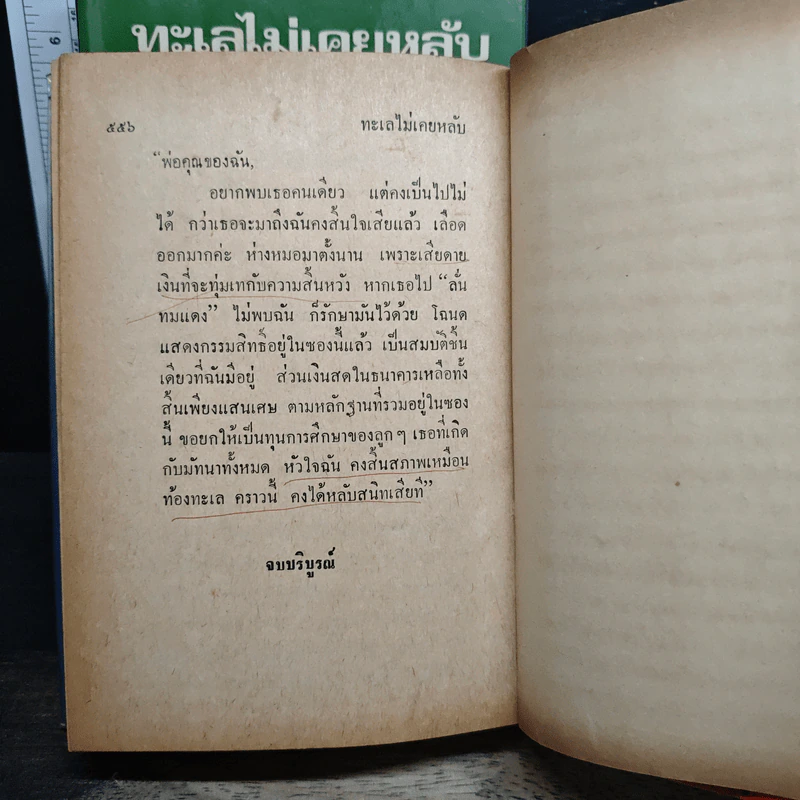 ทะเลไม่เคยหลับ
6
๕๕๖ ทะเลไม่เคยหลับ
“พ่อคุณของฉัน,
อยากพบเธอคนเดียว แต่คงเป็นไปไม่
ได้ กว่าเธอจะมาถึงฉันคงสิ้นใจเสียแล้ว เลือด
ออกมากค่ะ ห่างหมอมาตั้งนาน เพราะเสียดาย
เงินที่จะทุ่มเทกับความสิ้นหวัง หากเธอไป “ลั่น
ทมแดง” ไม่พบฉัน ก็รักษามันไว้ด้วย โฉนด
แสดงกรรมสิทธิ์อยู่ในซองนี้แล้ว เป็นสมบัติชิ้น
เดียวที่ฉันมีอยู่ ส่วนเงินสดในธนาคารเหลือทั้ง
สิ้นเพียงแสนเศษ ตามหลักฐานที่รวมอยู่ในซอง
นี้ ขอยกให้เป็นทุนการศึกษาของลูก ๆ เธอที่เกิด
กับมัทนาทั้งหมด หัวใจฉัน คงสิ้นสภาพเหมือน
ท้องทะเล คราวนี้ คงได้หลับสนิทเสียที”
จบบริบูรณ์